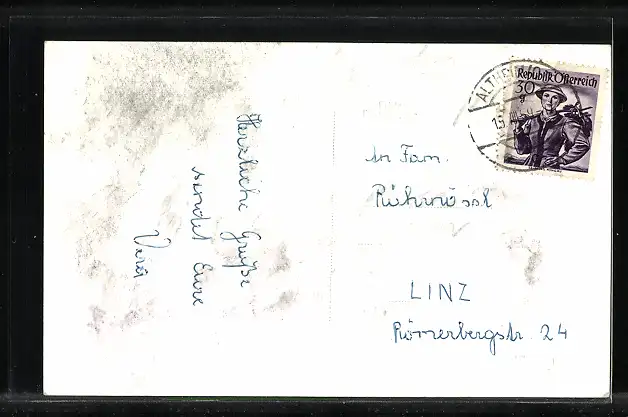 Herzliche Grüße
sendet Eure
Vera
An Fam.
Rührnössl
LINZ
Römerbergstr. 24
Republik Österreich
30
g